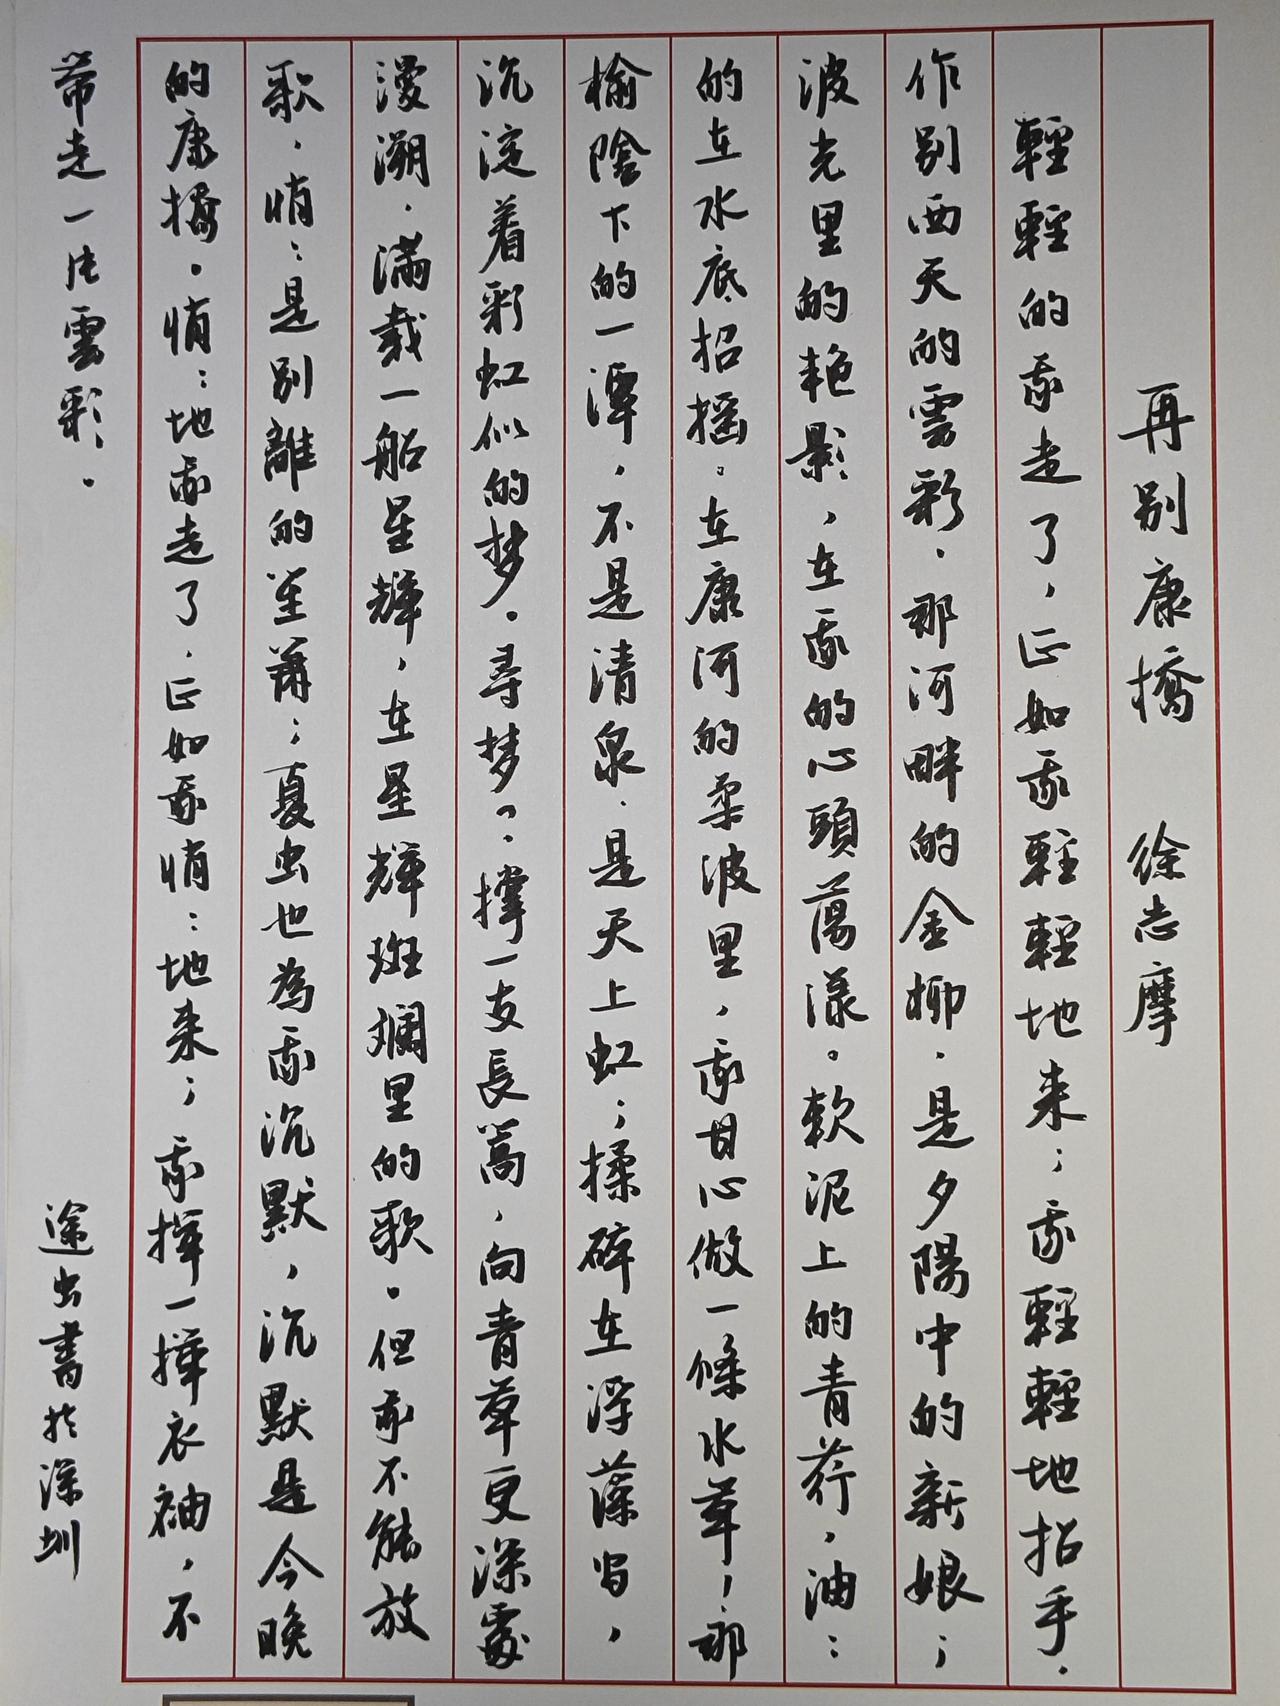 再别康橋　徐志摩
輕輕的我走了，正如我輕輕地来；我輕輕地招手．
作别西天的雲彩．那河畔的金柳．是夕陽中的新娘；
波光里的艳影，在我的心頭蕩漾。軟泥上的青荇，油：
的在水底招摇。在康河的柔波里，我甘心做一條水草，那
榆陰下的一潭，不是清泉．是天上虹；揉碎在浮藻间，
沉淀着彩虹似的梦．尋梦？．撑一支長蒿，向青草更深處
漫溯．满载一船星輝，在星輝斑斓里的歌．但我不能放
歌．悄：是别離的笙簫；夏虫也為我沉默，沉默是今晚
的康橋．悄：地我走了．正如我悄：地来；我揮一揮衣袖，不
带走一片雲彩．
途虫書於深圳